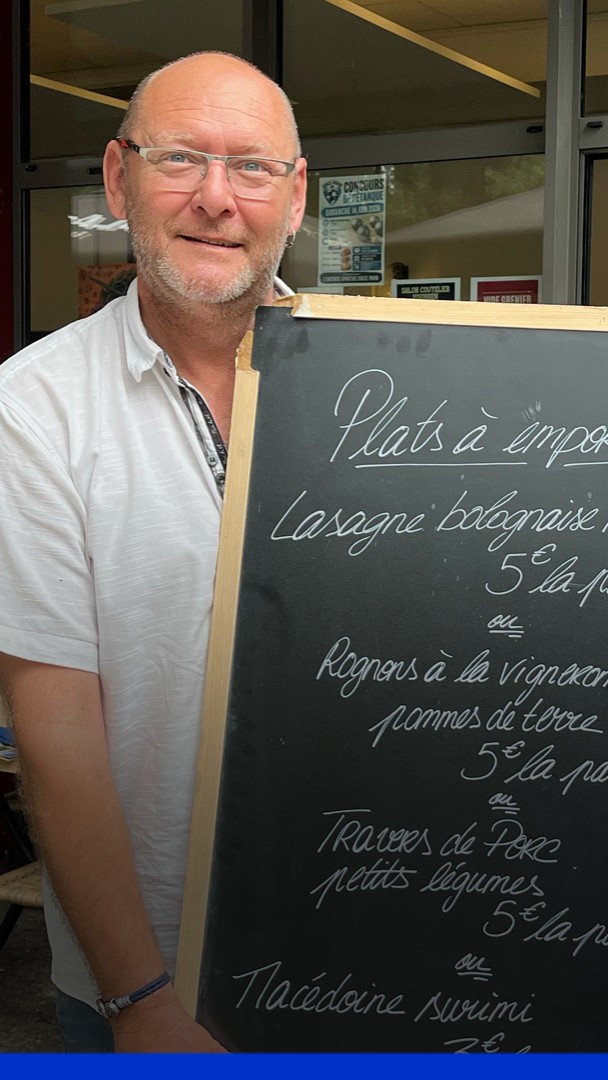 CONCOURS
DE PÉTANQUE
DIMANCHE 14 JUIN 2026
SALON COUTELIER
VIDE GRENIER
Plats à empor
Lasagne bolognaise
5€ la pa
ou
Rognons à la vigneron
pommes de terre
5€ la pa
ou
Travers de Porc
petits légumes
5€ la pa
ou
Macédoine surimi
3€